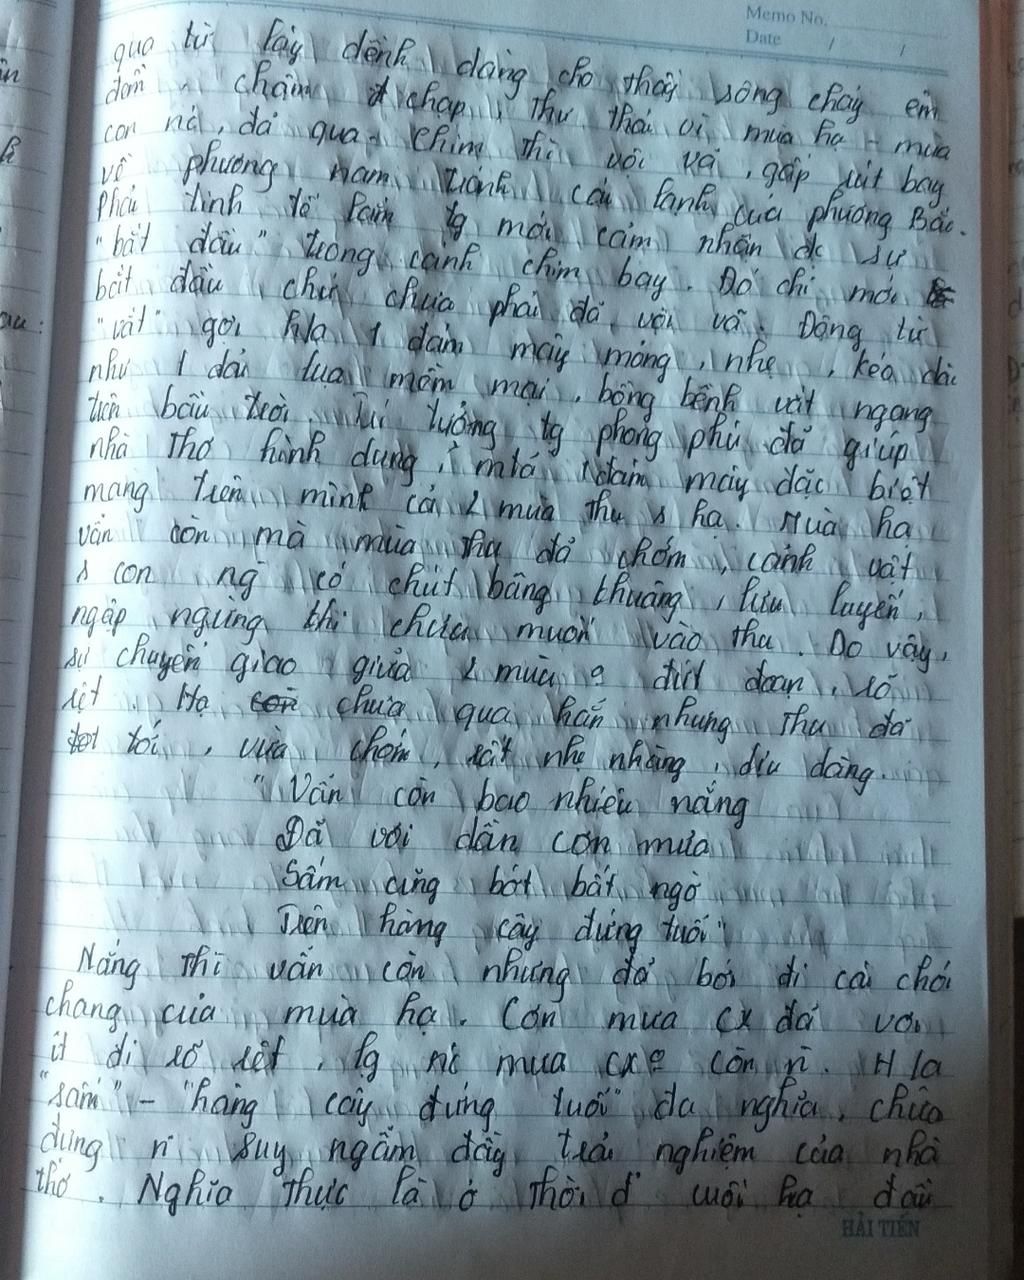 Memo No.
Date / /
qua từ láy dềnh dàng cho thấy sông chảy êm
đềm, chầm chậm, thư thái vì mùa hạ - mùa
con nc, đã qua. Chim thì vội vã, gấp rút bay
về phương nam tránh cái lạnh của phương Bắc.
Phải tinh tế lắm tg mới cảm nhận đc sự
"bắt đầu" trong cánh chim bay. Đó chỉ mới
bắt đầu chứ chưa phải đã vội vã. Động từ
"vắt" gợi h/a 1 đám mây mỏng, nhẹ, kéo dài
như 1 dải lụa mềm mại, bồng bềnh vắt ngang
trên bầu trời. Trí tưởng tg phong phú đã giúp
nhà thơ hình dung, mtả 1 đám mây đặc biệt
mang trên mình cả 2 mùa thu s hạ. Mùa hạ
vẫn còn mà mùa thu đã chớm, cảnh vật
s con ng có chút bâng khuâng, lưu luyến,
ngập ngừng khi chưa muốn vào thu. Do vậy,
sự chuyển giao giữa 2 mùa 0 đứt đoạn, rõ
rệt. Hạ chưa qua hẳn nhưng thu đã
tới, vừa chớm, rất nhẹ nhàng, dịu dàng.
"Vẫn còn bao nhiêu nắng
Đã vơi dần cơn mưa
Sấm cũng bớt bất ngờ
Trên hàng cây đứng tuổi"
Nắng thì vẫn còn nhưng đã bớt đi cái chói
chang của mùa hạ. Cơn mưa cx đã vơi
ít đi rõ rệt, lg nc mưa cx 0 còn n. H/a
"sấm" - "hàng cây đứng tuổi" đa nghĩa, chứa
đựng n suy ngẫm đầy trải nghiệm của nhà
thơ. Nghĩa thực là ở thời đ' cuối hạ đầu
HẢI TIẾN